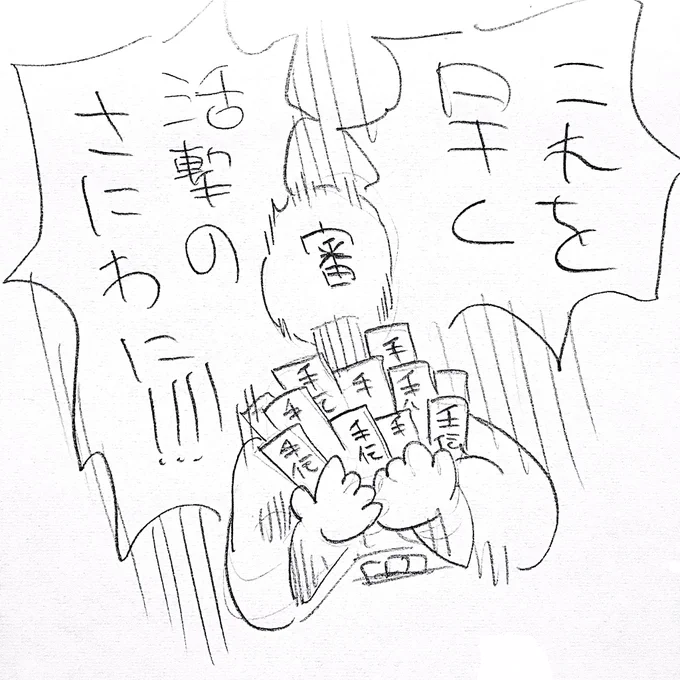 これを
早く
活撃の
さにわに!!!
審
手
手伝
手
手
手
手伝
手
手伝
手伝